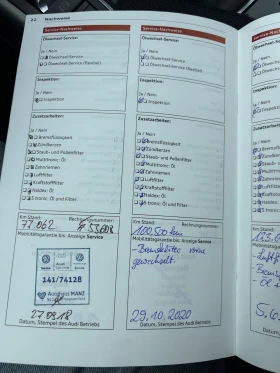 22 Nachweise
Service-Nachweise
Ölwechsel-Service:
Ja / Nein
Ölwechsel-Service
Ölwechsel-Service (flexibel)
Inspektion:
Ja / Nein
Inspektion
Zusatzarbeiten:
Ja / Nein
Bremsflüssigkeit
Zündkerzen
Staub- und Pollenfilter
Multitronic: Öl
Zahnriemen
Luftfilter
Kraftstofffilter
Haldex: Öl
S tronic: Öl und Filter
Km Stand:
77.062
Rechnungsnummer:
Mobilitätsgarantie bis: Anzeige Service
141/74128
Autohaus MANZ
27.09.18
Datum, Stempel des Audi Betriebs
Service-Nachweise
Ölwechsel-Service:
Ja / Nein
Ölwechsel-Service
Ölwechsel-Service (flexibel)
Inspektion:
Ja / Nein
Inspektion
Zusatzarbeiten:
Ja / Nein
Bremsflüssigkeit
Zündkerzen
Staub- und Pollenfilter
Multitronic: Öl
Zahnriemen
Luftfilter
Kraftstofffilter
Haldex: Öl
S tronic: Öl und Filter
Km Stand:
100.500 km
Rechnungsnummer:
Mobilitätsgarantie bis: Anzeige Service
- Bremsklötze vorne
gewechselt.
29.10.2020
Datum, Stempel des Audi Betriebs